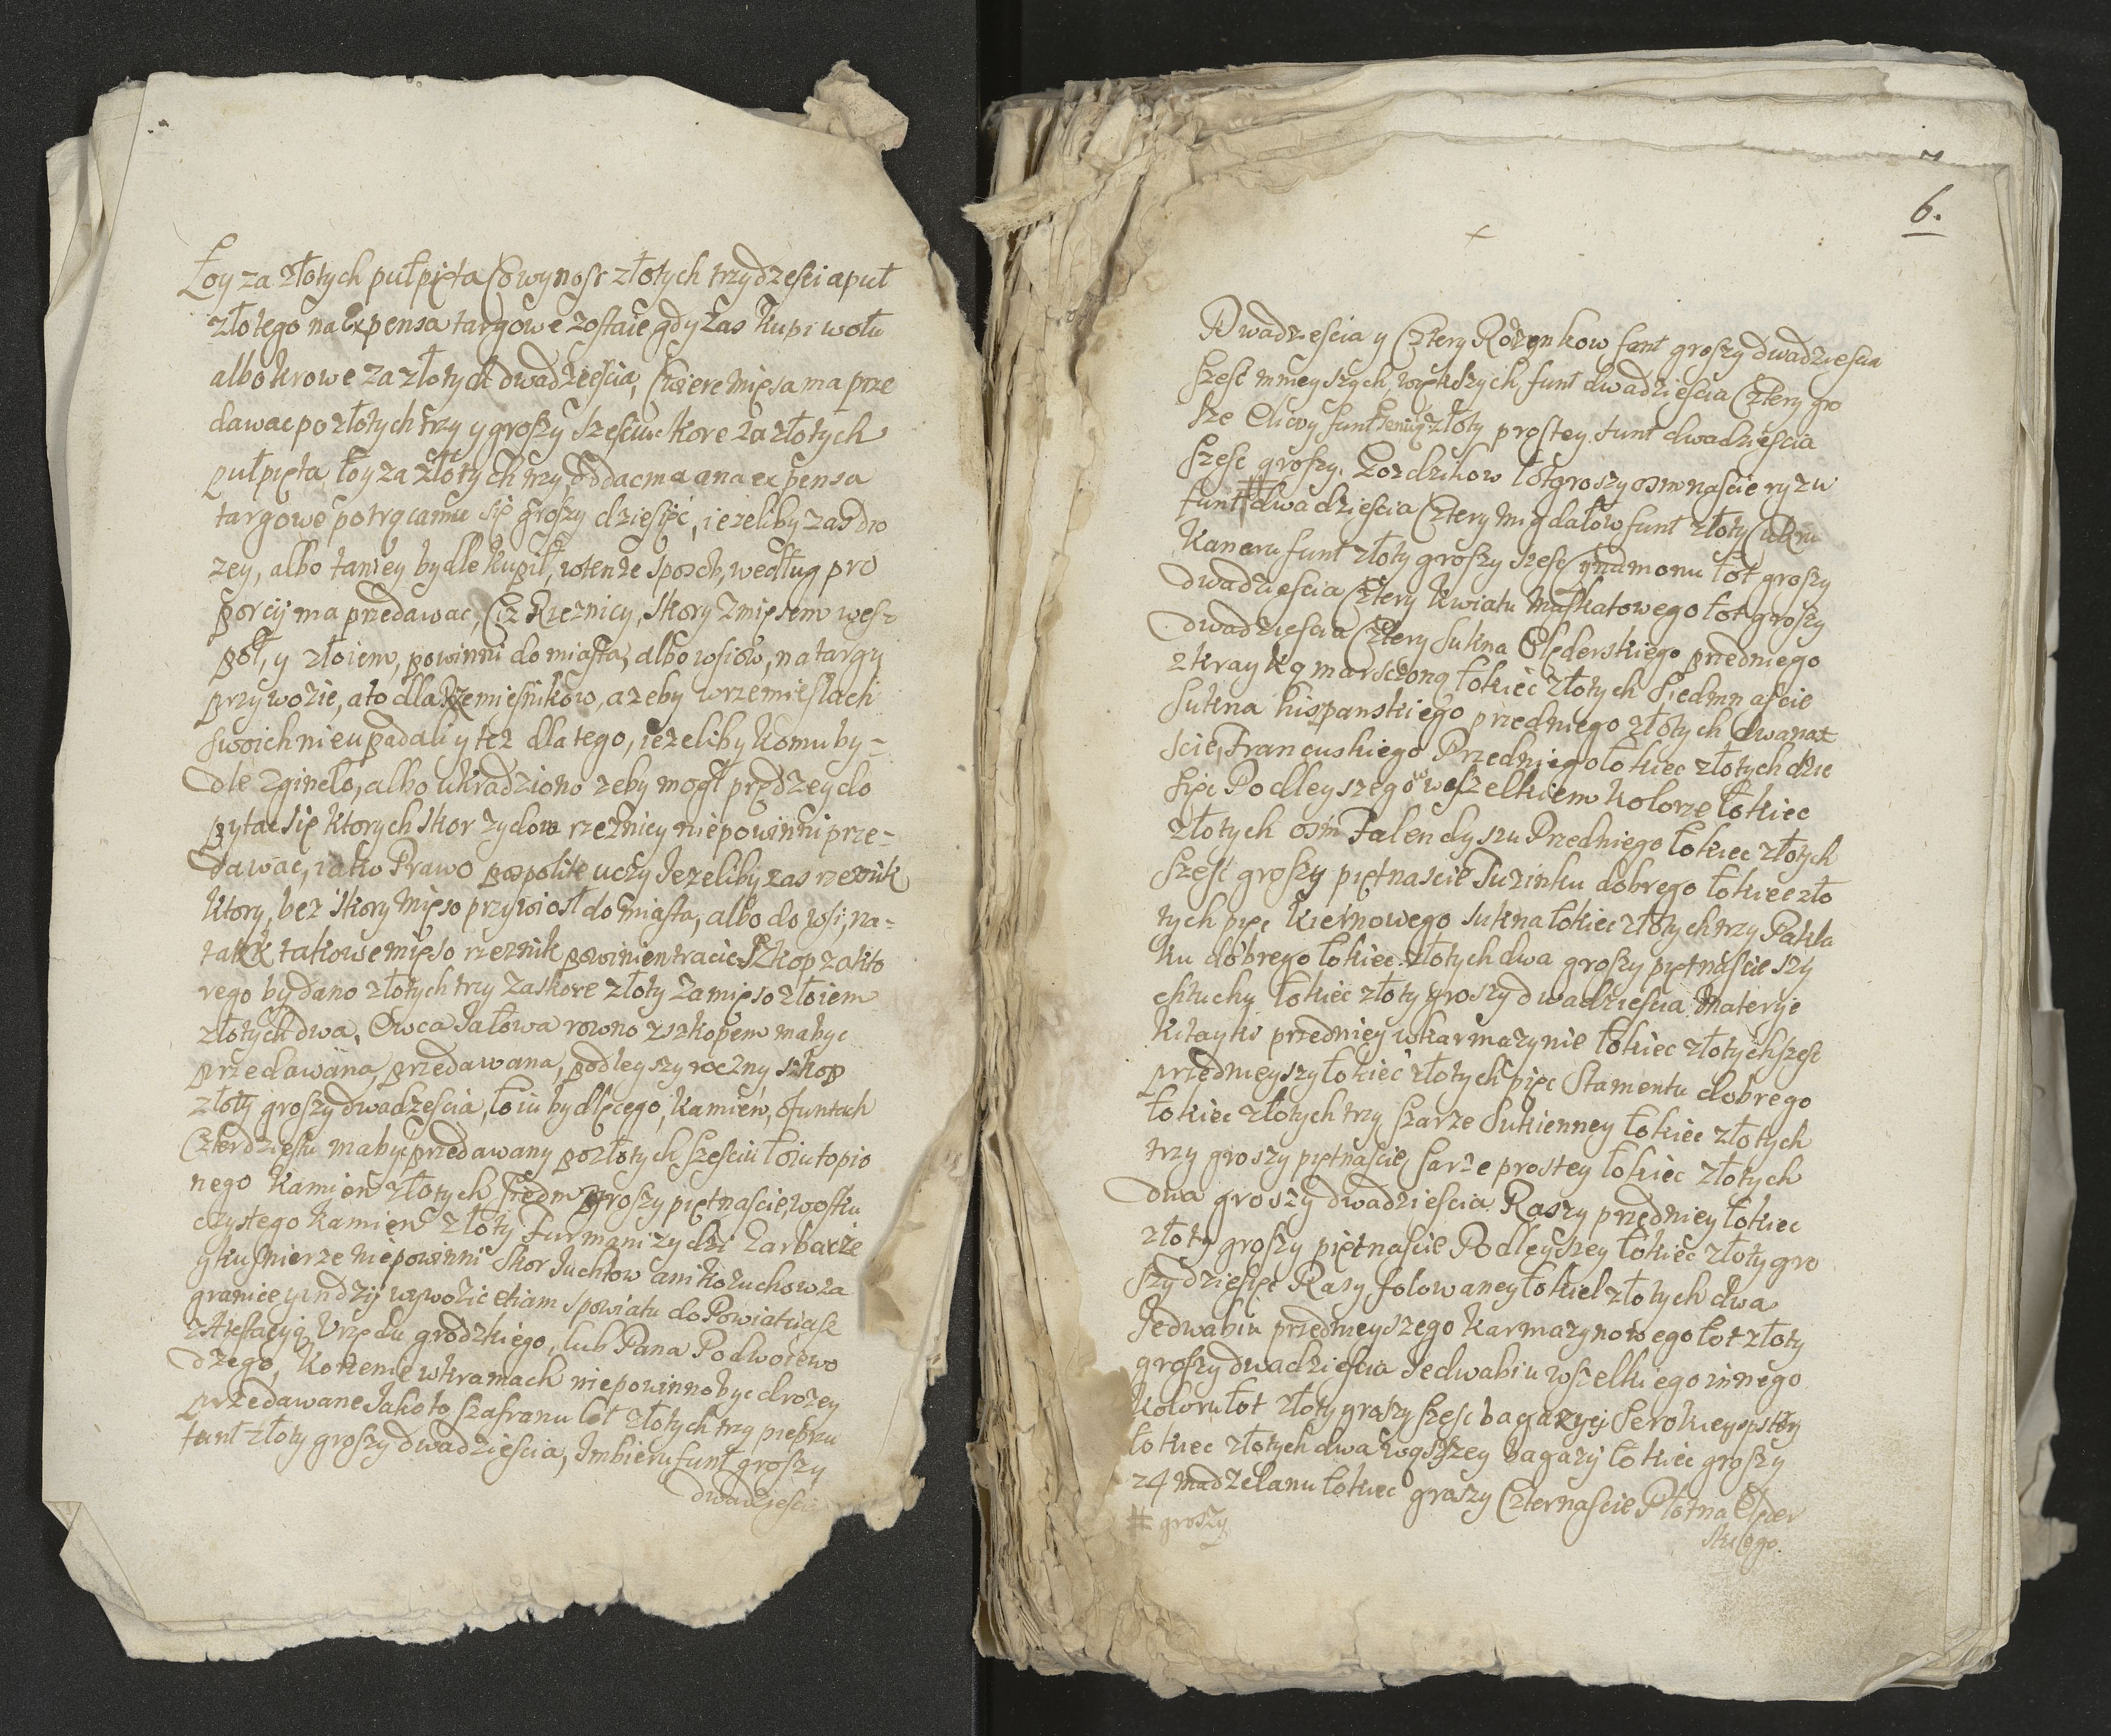 Łoy za złotych pułpięta Co wynosi złotych trzydzesci a puł
złotego na Expensa targowe zostaie gdy zas kupi wołu
albo krowe za złotych dwadziescia, Cwierc mięsa ma prze
dawac po złotych trzy y groszy szesciu skore za złotych
pułpięta łoy za złotych trzy oddac ma a na expensa
targowe potrącamu się groszy dziesięc, iezeliby zas dro
zey, albo taniey bydle kupił, wtenze sposob, według pro
porcij ma przedawac, Ciz Rzeznicy, skory z mięsem wesz
poł, y złoiem, powinni do miasta, albo wsiow, na targy
przywozic, a to dla Rzemiesnikow, azeby w rzemieslach
swoich nie upadali y tez dla tego, iezeliby komu by=
dle zgineło, albo ukradziono zeby mogł prędzey do
pytac się ktorych skor zydom rzeznicy nie powinni prze=
dawac, iako Prawo pospolite uczy Jezeliby zas rzeznik
ktory, bez skory mięso przywiosł do miasta, albo do wsi, na=
takowe mięso rzeznik powinien tracic Szkop za kto
rego by dano złotych trzy za skore złoty za mięso złoiem
złotych dwa, Owca Jałowa rowno z szkopem ma byc
przedawana, przedawana, podleyszy roczny szkop
złoty groszy dwadzescia, łoiu bydlęcego, kamien, o funtach
Czterdziestu ma byc przedawany po złotych szesciu łoiu topio
nego kamien złotych siedm groszy piętnascie, wosku
czystego kamien złoty furmani zydzi Garbarze
y kusnierze nie powinni skor Juchtow ani kozuchow za
granice y indzij wywozic etiam z powiatu do Powiatu asz
z Attestacyją Vrzędu grodzkiego, lub Pana Podwoiewo
dzego, Korzenie w kramach nie powinno byc drozey
przedawane Jako to szafranu łot złotych trzy pieprzu
funt złoty groszy dwadziescia, Imbieru funt groszy
dwadziescia
6.
Dwadziescia y Cztery Rozynkow funt groszy dwadziescia
szesc mnieyszych, większych, funt dwadziescia Cztery gro
sze Oliwy funt złoty prostey funt dwadziescia
szesc groszy. Gozdzikow łot groszy osmnascie ryzu
funt # dwadziescia Cztery migdałow funt złoty Cukru
Kanaru funt złoty groszy szesc Cynamonu łot groszy
dwadziescia Cztery kwiatu muszkatowego łot groszy
dwadziescia Cztery Sukna Olęderskiego przedniego
z krayką marszczoną łokiec złotych siedmnascie
Sukna hiszpanskiego przedniego złotych dwanas
scie, Francuskiego Przedniego łokiec złotych dzie
sięc Podleyszego w wszelkiem kolorze łokiec
złotych osm Falendyszu Przedniego łokiec złotych
szesc groszy piętnascie Tuzinku dobrego łokiec zło
tych pięc kiernowego sukna łokiec złotych trzy Pakla
ku dobrego łokiec złotych dwa groszy piętnascie szy
chtuchy łokiec złoty groszy dwadziescia. Materyje
kitayki przedniey w karmazynie łokiec złotych szesc
przednieyszy łokiec złotych pięc Stamentu dobrego
łokiec złotych trzy szarze Sukienney łokiec złotych
trzy groszy piętnascie, sarze prostey łokiec złotych
dwa groszy dwadziescia Raszy przedniey łokiec
złoty groszy piętnascie Podleyszey łokiec złoty gro
szy dziesięc Raszy folowaney łokiec złotych dwa
Jedwabiu przednieyszego karmazynowego łot złoty
groszy dwadziescia Jedwabiu wszelkiego innego
koloru łot złoty groszy szesc bagazyj szerokiey pstry
łokiec złotych dwa węszszey bagazij łokiec groszy
24 Madzelanu łokiec groszy Czternascie Płotna Olęder
skiego.
# groszy